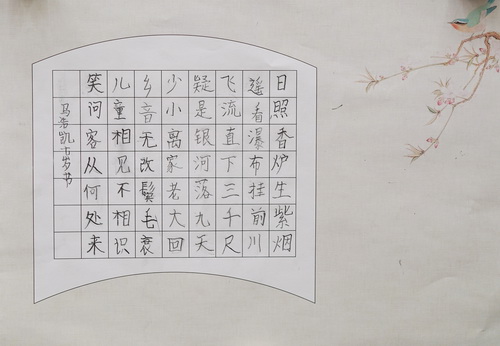 日照香炉生紫烟
遥看瀑布挂前川
飞流直下三千尺
疑是银河落九天
少小离家老大回
乡音无改鬓毛衰
儿童相见不相识
笑问客从何处来
马浩凯七岁书